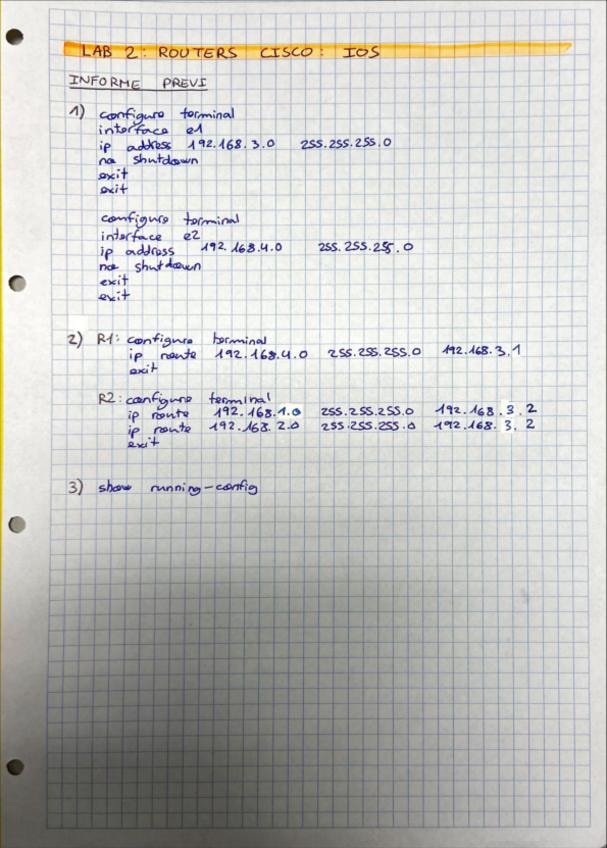 LAB 2: ROUTERS CISCO: IOS
INFORME PREVI
1) configure terminal
interface e1
ip address 192.168.3.0 255.255.255.0
no shutdown
exit
exit
configure terminal
interface e2
ip address 192.168.4.0 255.255.255.0
no shutdown
exit
exit
2) R1: configure terminal
ip route 192.168.4.0 255.255.255.0 192.168.3.1
exit
R2: configure terminal
ip route 192.168.1.0 255.255.255.0 192.168.3.2
ip route 192.168.2.0 255.255.255.0 192.168.3.2
exit
3) show running-config